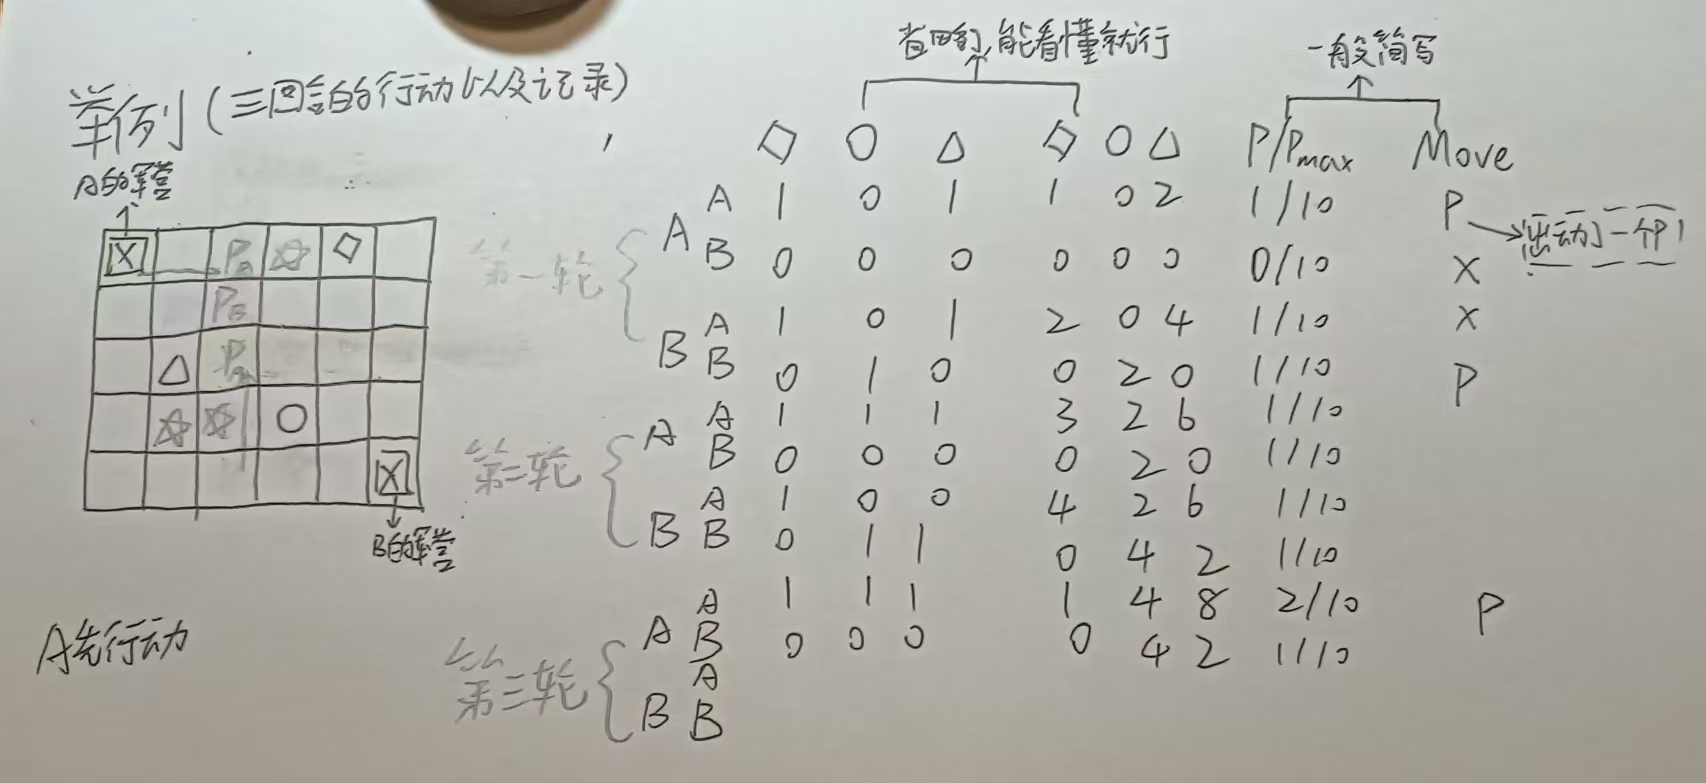 省略,能看懂就行
一般简写
举例(三回合的行动以及记录)
A的军营
◇ ○ △ ◇ ○ △ P/Pmax Move
第一轮
A
A 1 0 1 1 0 2 1/10 P → 出动了一个P
B 0 0 0 0 0 0 0/10 X
B
A 1 0 1 2 0 4 1/10 X
B 0 1 0 0 2 0 1/10 P
第二轮
A
A 1 1 1 3 2 6 1/10
B 0 0 0 0 2 0 1/10
B
A 1 0 0 4 2 6 1/10
B 0 1 1 0 4 2 1/10
第三轮
A
A 1 1 1 1 4 8 2/10 P
B 0 0 0 0 4 2 1/10
B
A
B
X ☆ ◇
PB
△
☆ ☆ ○
X
B的军营
A先行动